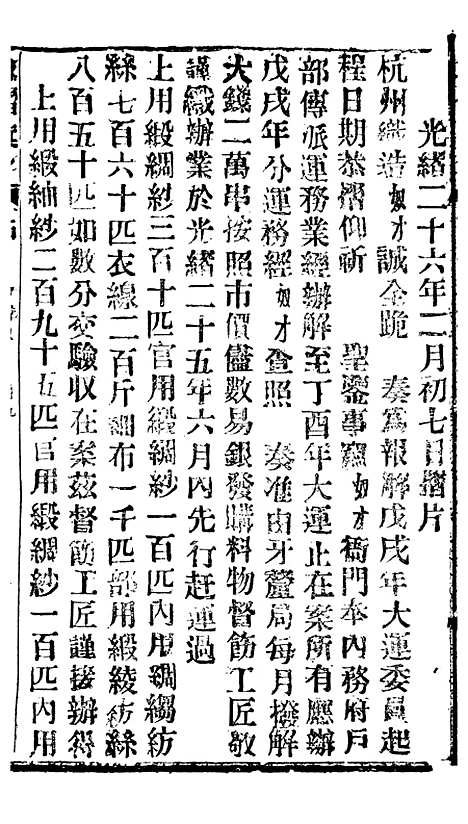 光緒二十六年二月初七日摺片
杭州織造奴才誠全跪 奏爲報解戊戌年大運委員起
程日期恭摺仰祈 聖鑒事竊奴才衙門奉內務府戶
部傳派運務業經辦解至丁酉年大運止在案所有應辦
戊戌年分運務經奴才查照 奏准由牙釐局每月撥解
大錢二萬串按照市價儘數易銀發購料物督飭工匠敬
謹織辦業於光緒二十五年六月內先行赶運過
上用緞綢紗三百十匹官用緞綢紗一百匹內用綢縐紡
絲七百六十匹衣線二百斤細布一千匹部用緞綾紡絲
八百五十匹如數分交驗收在案茲督飭工匠謹接辦得
上用緞紬紗二百九十五匹官用緞綢紗一百匹內用